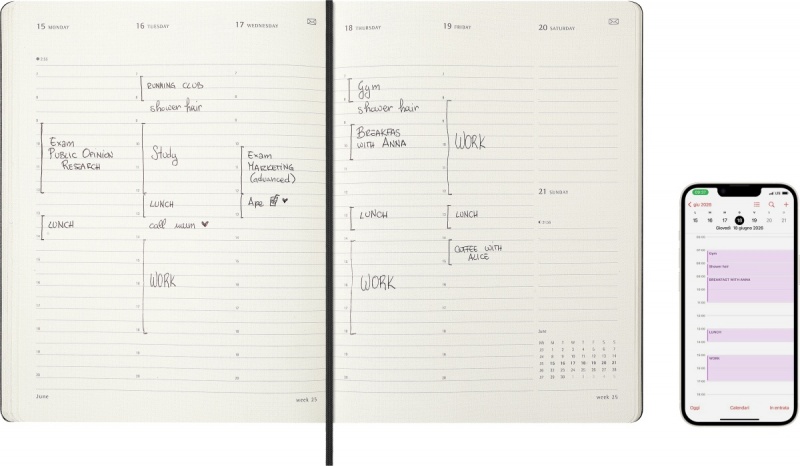 15 MONDAY
Exam
PUBLIC OPINION
RESEARCH
LUNCH
June
16 TUESDAY
RUNNING CLUB
shower hair
Study
LUNCH
call mum
WORK
17 WEDNESDAY
Exam
MARKETING
(advanced)
Ape
week 25
18 THURSDAY
Gym
shower hair
BREAKFAS
WITH ANNA
LUNCH
WORK
19 FRIDAY
WORK
LUNCH
COFFEE WITH
ALICE
20 SATURDAY
21 SUNDAY
week 25
giu 2026
15 16 17 18 19 20 21
Giovedì 18 giugno 2026
Gym
Shower hair
BREAKFAST WITH ANNA
LUNCH
WORK
Oggi
Calendari
In entrata